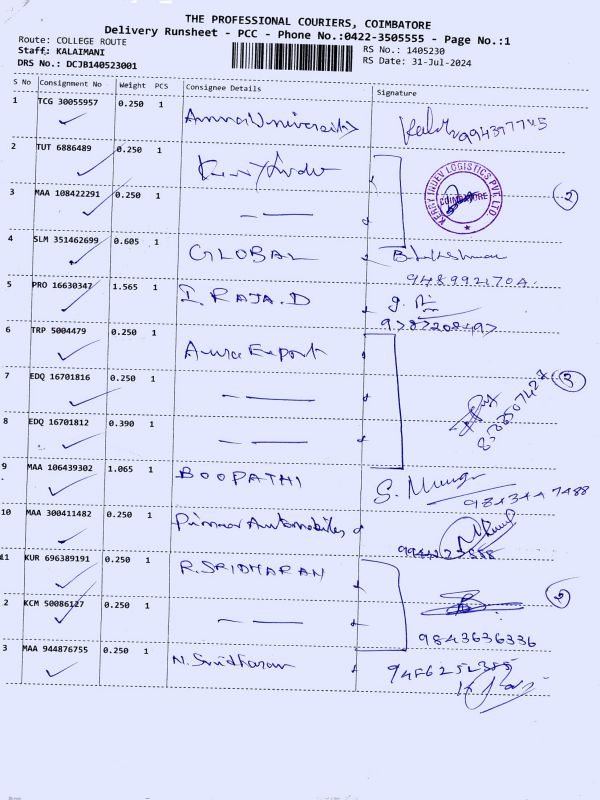 THE PROFESSIONAL COURIERS, COIMBATORE
Delivery Runsheet - PCC - Phone No.:0422-3505555 - Page No.:1
Route: COLLEGE ROUTE
Staff: KALAIMANI
DRS No.: DCJB140523001
RS No.: 1405230
RS Date: 31-Jul-2024
S No Consignment No Weight PCS Consignee Details Signature
1 TCG 30055957 0.250 1 Anna University
2 TUT 6886489 0.250 1
KERRY INDEV LOGISTICS PVT. LTD.
COIMBATORE
2
3 MAA 108422291 0.250 1 — —
4 SLM 351462699 0.605 1 GLOBAL
5 PRO 16630347 1.565 1 I. RAJA.D
6 TRP 5004479 0.250 1 Aura Export
7 EDQ 16701816 0.250 1 — —
3
8 EDQ 16701812 0.390 1 — —
9 MAA 106439302 1.065 1 BOOPATHI
10 MAA 300411482 0.250 1 Automobiles
11 KUR 696389191 0.250 1 R.SRIDHARAN
2 KCM 50086127 0.250 1 — —
9843636336
3 MAA 944876755 0.250 1 N. Sridharan